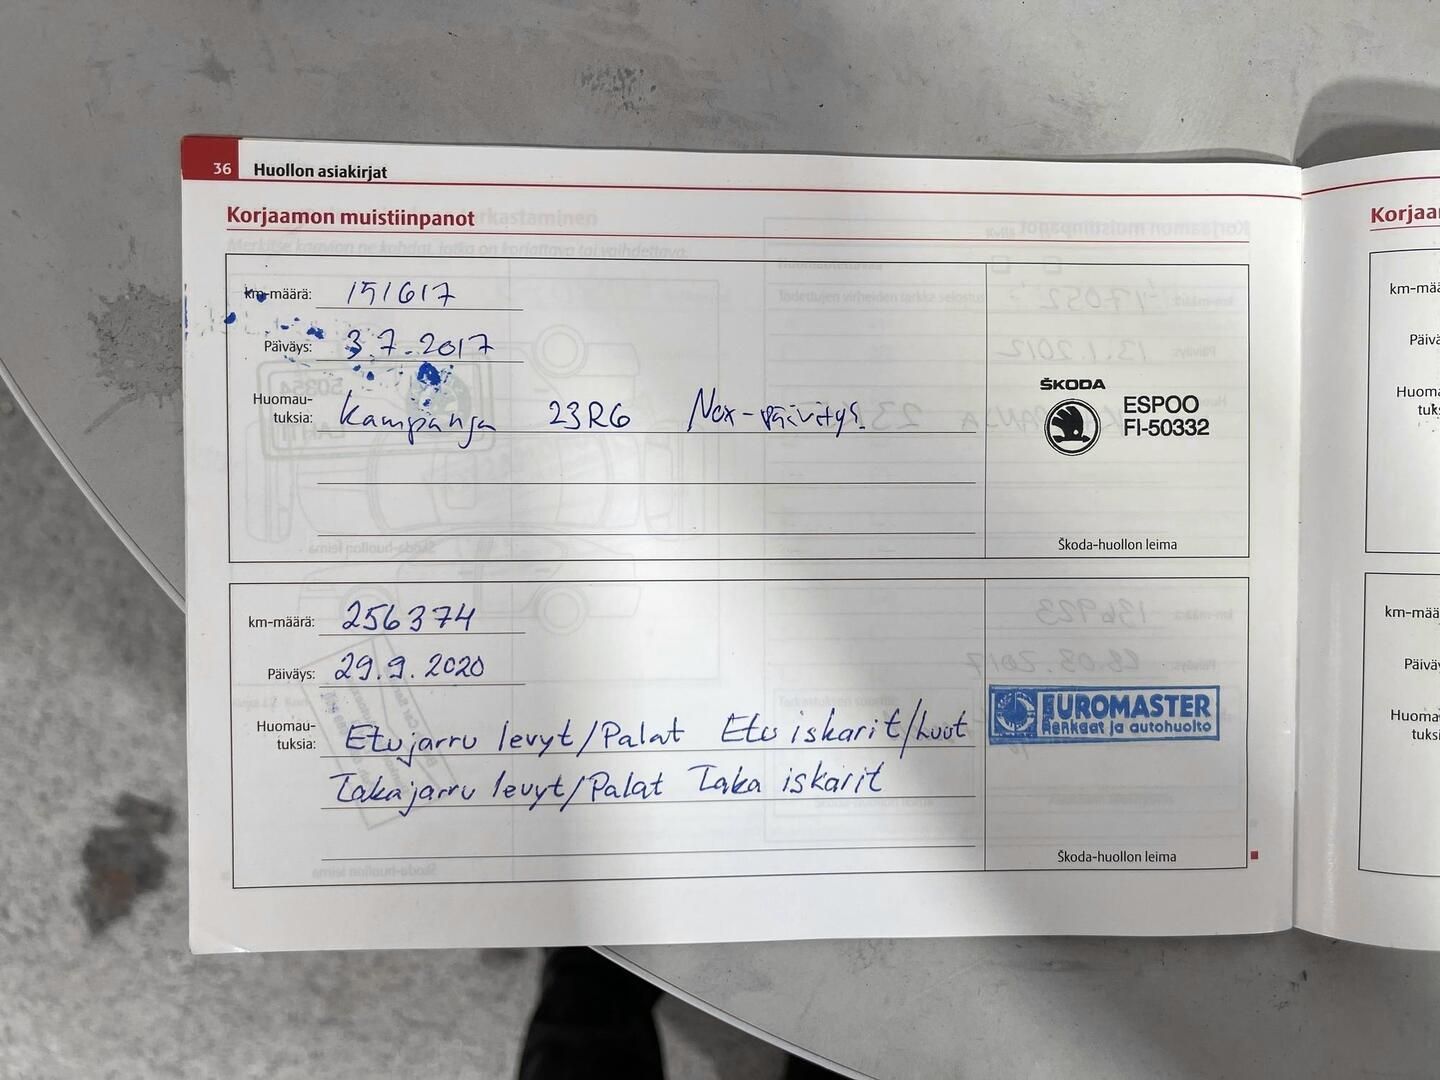 36 Huollon asiakirjat
Korjaamon muistiinpanot
km-määrä: 151617
Päiväys: 3.7.2017
Huomau-
tuksia: Kampanja 23R6 Nox-päivitys.
ŠKODA
ESPOO
FI-50332
Škoda-huollon leima
km-määrä: 256374
Päiväys: 29.9.2020
Huomau-
tuksia: Etujarru levyt/Palat Etu iskarit/Luot
Takajarru levyt/Palat Taka iskarit
EUROMASTER
Renkaat ja autohuolto
Škoda-huollon leima
Korjaa
km-mää
Päivä
Huoma
tuks
km-mää
Päiväy
Huoma
tuksi